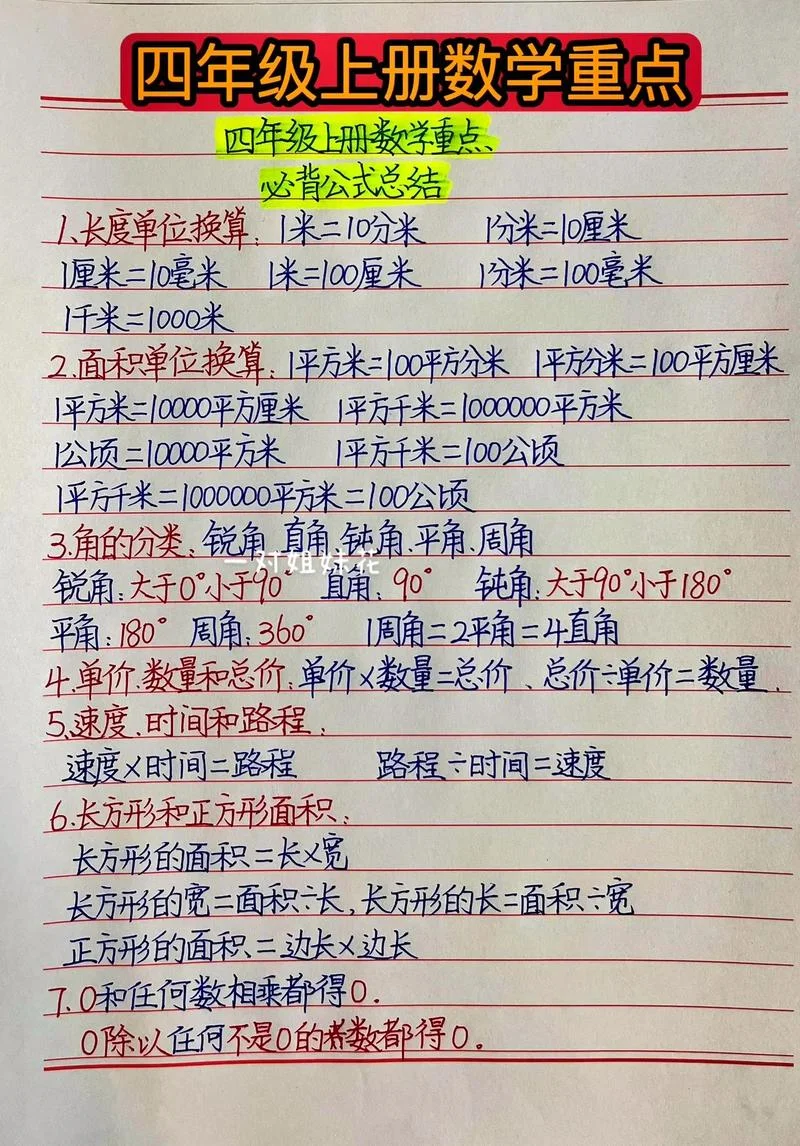 四年级上册数学重点
四年级上册数学重点、
必背公式总结
1、长度单位换算：1米=10分米 1分米=10厘米
1厘米=10毫米 1米=100厘米 1分米=100毫米
1千米=1000米
2.面积单位换算：1平方米=100平方分米 1平方分米=100平方厘米
1平方米=10000平方厘米 1平方千米=1000000平方米
1公顷=10000平方米 1平方千米=100公顷
1平方千米=1000000平方米=100公顷
3.角的分类：锐角、直角、钝角、平角、周角
一对姐妹花
锐角：大于0°小于90° 直角：90° 钝角：大于90°小于180°
平角：180° 周角：360° 1周角=2平角=4直角
4.单价、数量和总价：单价×数量=总价、总价÷单价=数量.
5、速度、时间和路程：
速度×时间=路程 路程÷时间=速度
6.长方形和正方形面积：
长方形的面积=长×宽
长方形的宽=面积÷长,长方形的长=面积÷宽
正方形的面积=边长×边长
7.0和任何数相乘都得0.
0除以任何不是0的数都得0。